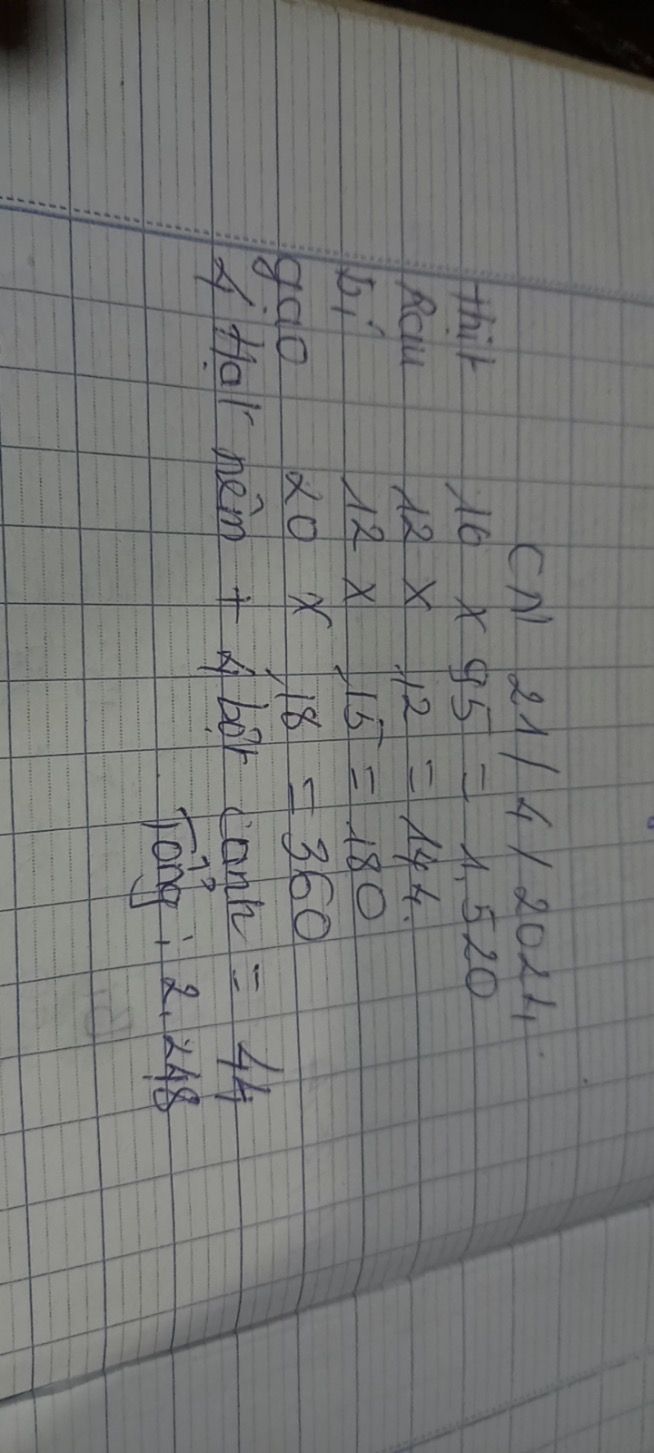 CN 21/4/2024
thịt 16 x 95 = 1,520
Rau 12 x 12 = 144.
bí 12 x 15 = 180
gạo 20 x 18 = 360
4 Hạt nêm + 4 bột canh = 44
Tổng: 2,248